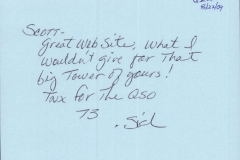 Scott-
Great Web Site, What I
Wouldn't give for That
big Tower of yours!
Tnx for The QSO
73
. Sid